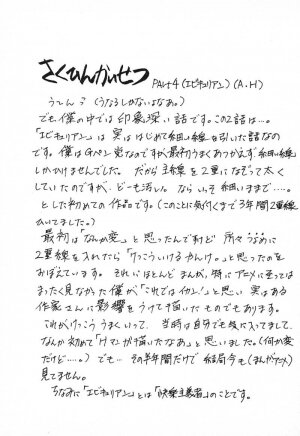 さくひんかいせつ PART4 (エピキュリアン) (A.H)
うーん? (うなるしかないよなあ。)
でも僕の中では印象深い話です。この2話は…。
「エピキュリアン」は 実は はじめて細い線を引いた話なの
です。僕はGペン党なのですが、最初うまくあつかえず 細い線
しかかけませんでした。だから主線を2重になぞって太く
していたのですが、ども活し。ならいっそ細いまま…。
とした初めての作品です。(このことに気付くまで3年間2重線
かいてました。)
最初は「なんか変。」と思ったんですけど 所々
2重線を入れたら「けっこういけるやんけ。」と思ったのを
おぼえています。それにほとんどまんが、特にアニメに至っては
まったく見なかった僕が「これではイカン!」と思い 実はある
作家さんに影響をうけて描いたものでもあります。
これがけっこう うまくいって、当時は自分でも気に入ってまして、
なんか初めて「ケマンが描いたなあ」と思いました。(何か変
だけど…。) でも… その半年間だけで 結局今も(まんがアニメ)
見てません。
ちなみに「エピキュリアン」とは「快楽主義者」のことです。